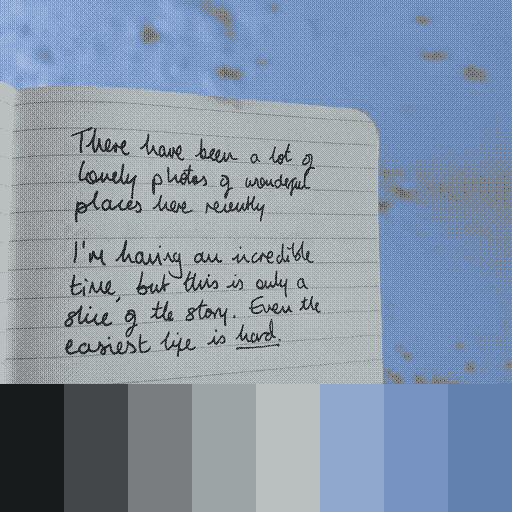 There have been a lot of
lovely photos of wonderful
places here recently
I'm having an incredible
time, but this is only a
slice of the story. Even the
easiest life is hard.